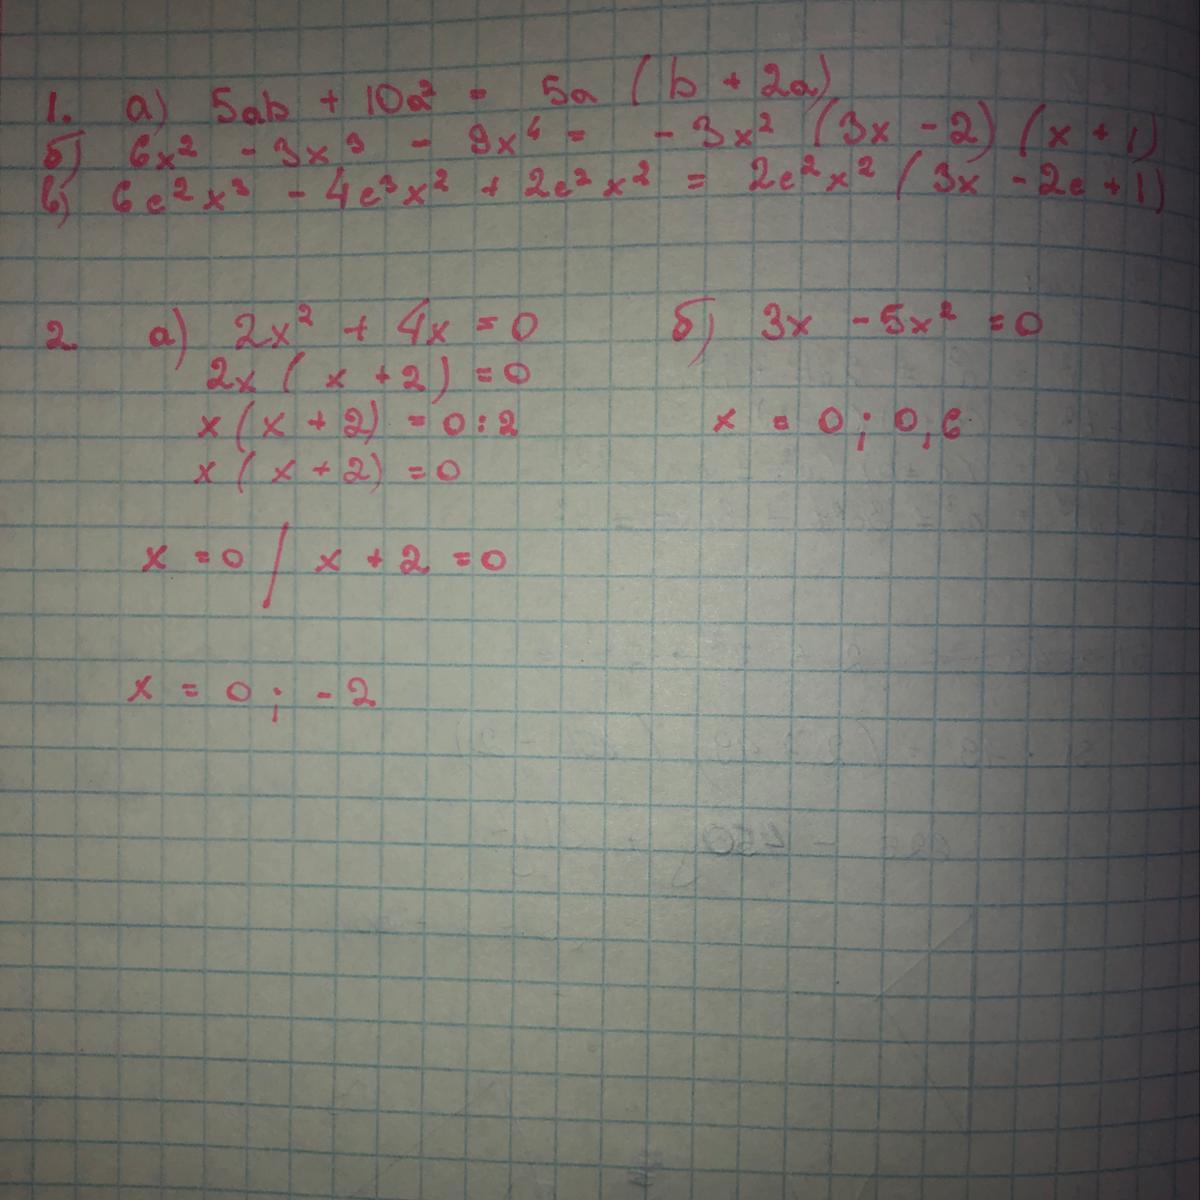 1. а) 5ab + 10a² = 5a (b + 2a)
б) 6x² - 3x³ - 9x⁴ = -3x² (3x - 2) (x + 1)
в) 6c²x³ - 4c³x² + 2c²x² = 2c²x² (3x - 2c + 1)
2. а) 2x² + 4x = 0 б) 3x - 5x² = 0
2x (x + 2) = 0
x (x + 2) = 0 : 2 x = 0; 0,6
x (x + 2) = 0
x = 0 / x + 2 = 0
x = 0; -2